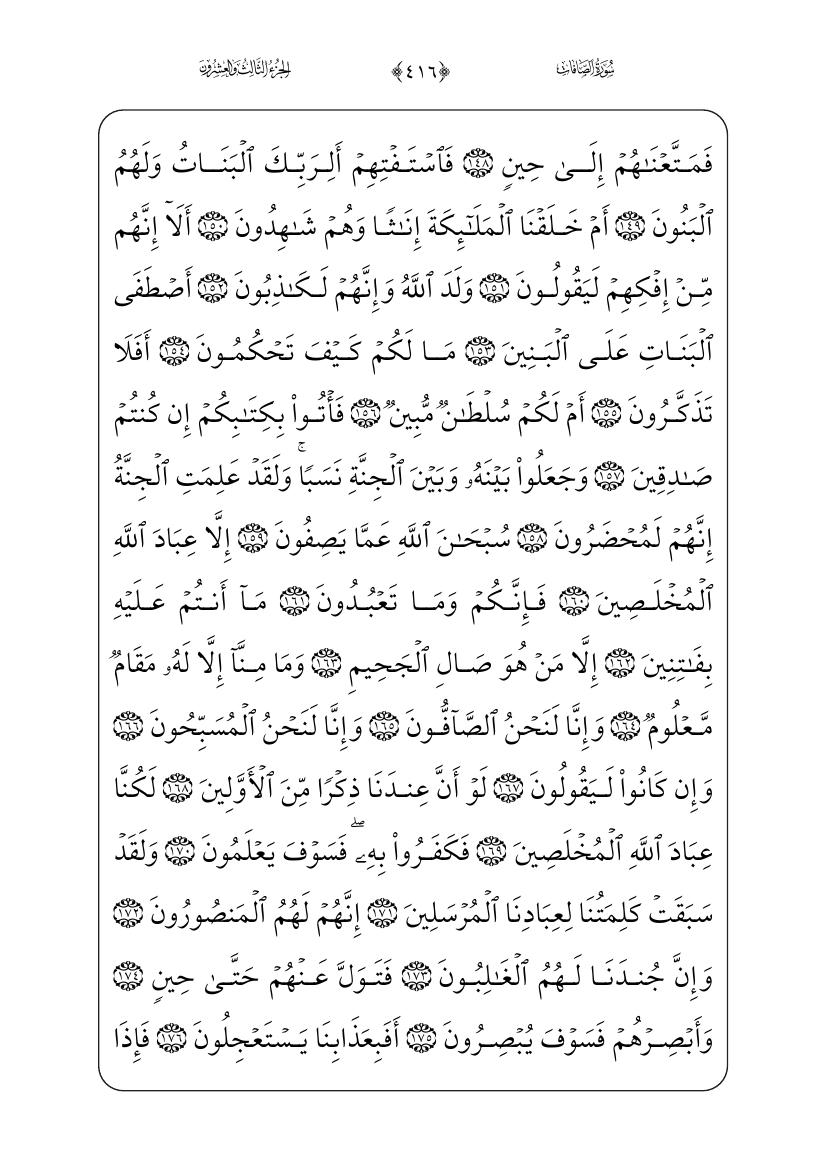 سُورَةُ الصَّافَّاتِ ﴿٤١٦﴾ الجُزْءُ الثَّالِثُ وَالعِشْرُونَ
فَمَتَّعْنَـٰهُمْ إِلَىٰ حِينٍ ١٤٨ فَٱسْتَفْتِهِمْ أَلِرَبِّكَ ٱلْبَنَاتُ وَلَهُمُ
ٱلْبَنُونَ ١٤٩ أَمْ خَلَقْنَا ٱلْمَلَـٰٓئِكَةَ إِنَـٰثًا وَهُمْ شَـٰهِدُونَ ١٥٠ أَلَآ إِنَّهُم
مِّنْ إِفْكِهِمْ لَيَقُولُونَ ١٥١ وَلَدَ ٱللَّهُ وَإِنَّهُمْ لَكَـٰذِبُونَ ١٥٢ أَصْطَفَى
ٱلْبَنَاتِ عَلَى ٱلْبَنِينَ ١٥٣ مَا لَكُمْ كَيْفَ تَحْكُمُونَ ١٥٤ أَفَلَا
تَذَكَّرُونَ ١٥٥ أَمْ لَكُمْ سُلْطَـٰنٌ مُّبِينٌ ١٥٦ فَأْتُوا۟ بِكِتَـٰبِكُمْ إِن كُنتُمْ
صَـٰدِقِينَ ١٥٧ وَجَعَلُوا۟ بَيْنَهُۥ وَبَيْنَ ٱلْجِنَّةِ نَسَبًا ۚ وَلَقَدْ عَلِمَتِ ٱلْجِنَّةُ
إِنَّهُمْ لَمُحْضَرُونَ ١٥٨ سُبْحَـٰنَ ٱللَّهِ عَمَّا يَصِفُونَ ١٥٩ إِلَّا عِبَادَ ٱللَّهِ
ٱلْمُخْلَصِينَ ١٦٠ فَإِنَّكُمْ وَمَا تَعْبُدُونَ ١٦١ مَآ أَنتُمْ عَلَيْهِ
بِفَـٰتِنِينَ ١٦٢ إِلَّا مَنْ هُوَ صَالِ ٱلْجَحِيمِ ١٦٣ وَمَا مِنَّآ إِلَّا لَهُۥ مَقَامٌ
مَّعْلُومٌ ١٦٤ وَإِنَّا لَنَحْنُ ٱلصَّآفُّونَ ١٦٥ وَإِنَّا لَنَحْنُ ٱلْمُسَبِّحُونَ ١٦٦
وَإِن كَانُوا۟ لَيَقُولُونَ ١٦٧ لَوْ أَنَّ عِندَنَا ذِكْرًا مِّنَ ٱلْأَوَّلِينَ ١٦٨ لَكُنَّا
عِبَادَ ٱللَّهِ ٱلْمُخْلَصِينَ ١٦٩ فَكَفَرُوا۟ بِهِۦ ۖ فَسَوْفَ يَعْلَمُونَ ١٧٠ وَلَقَدْ
سَبَقَتْ كَلِمَتُنَا لِعِبَادِنَا ٱلْمُرْسَلِينَ ١٧١ إِنَّهُمْ لَهُمُ ٱلْمَنصُورُونَ ١٧٢
وَإِنَّ جُندَنَا لَهُمُ ٱلْغَـٰلِبُونَ ١٧٣ فَتَوَلَّ عَنْهُمْ حَتَّىٰ حِينٍ ١٧٤
وَأَبْصِرْهُمْ فَسَوْفَ يُبْصِرُونَ ١٧٥ أَفَبِعَذَابِنَا يَسْتَعْجِلُونَ ١٧٦ فَإِذَا